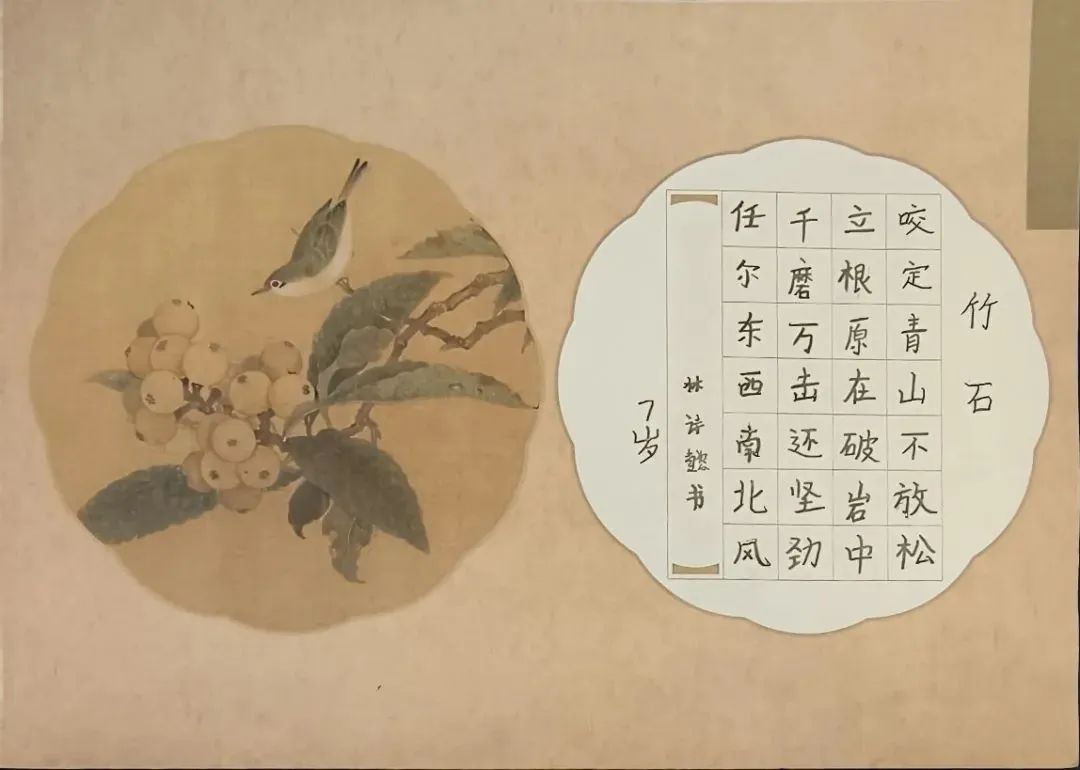 竹石
咬定青山不放松
立根原在破岩中
千磨万击还坚劲
任尔东西南北风
林诗懿书
7岁